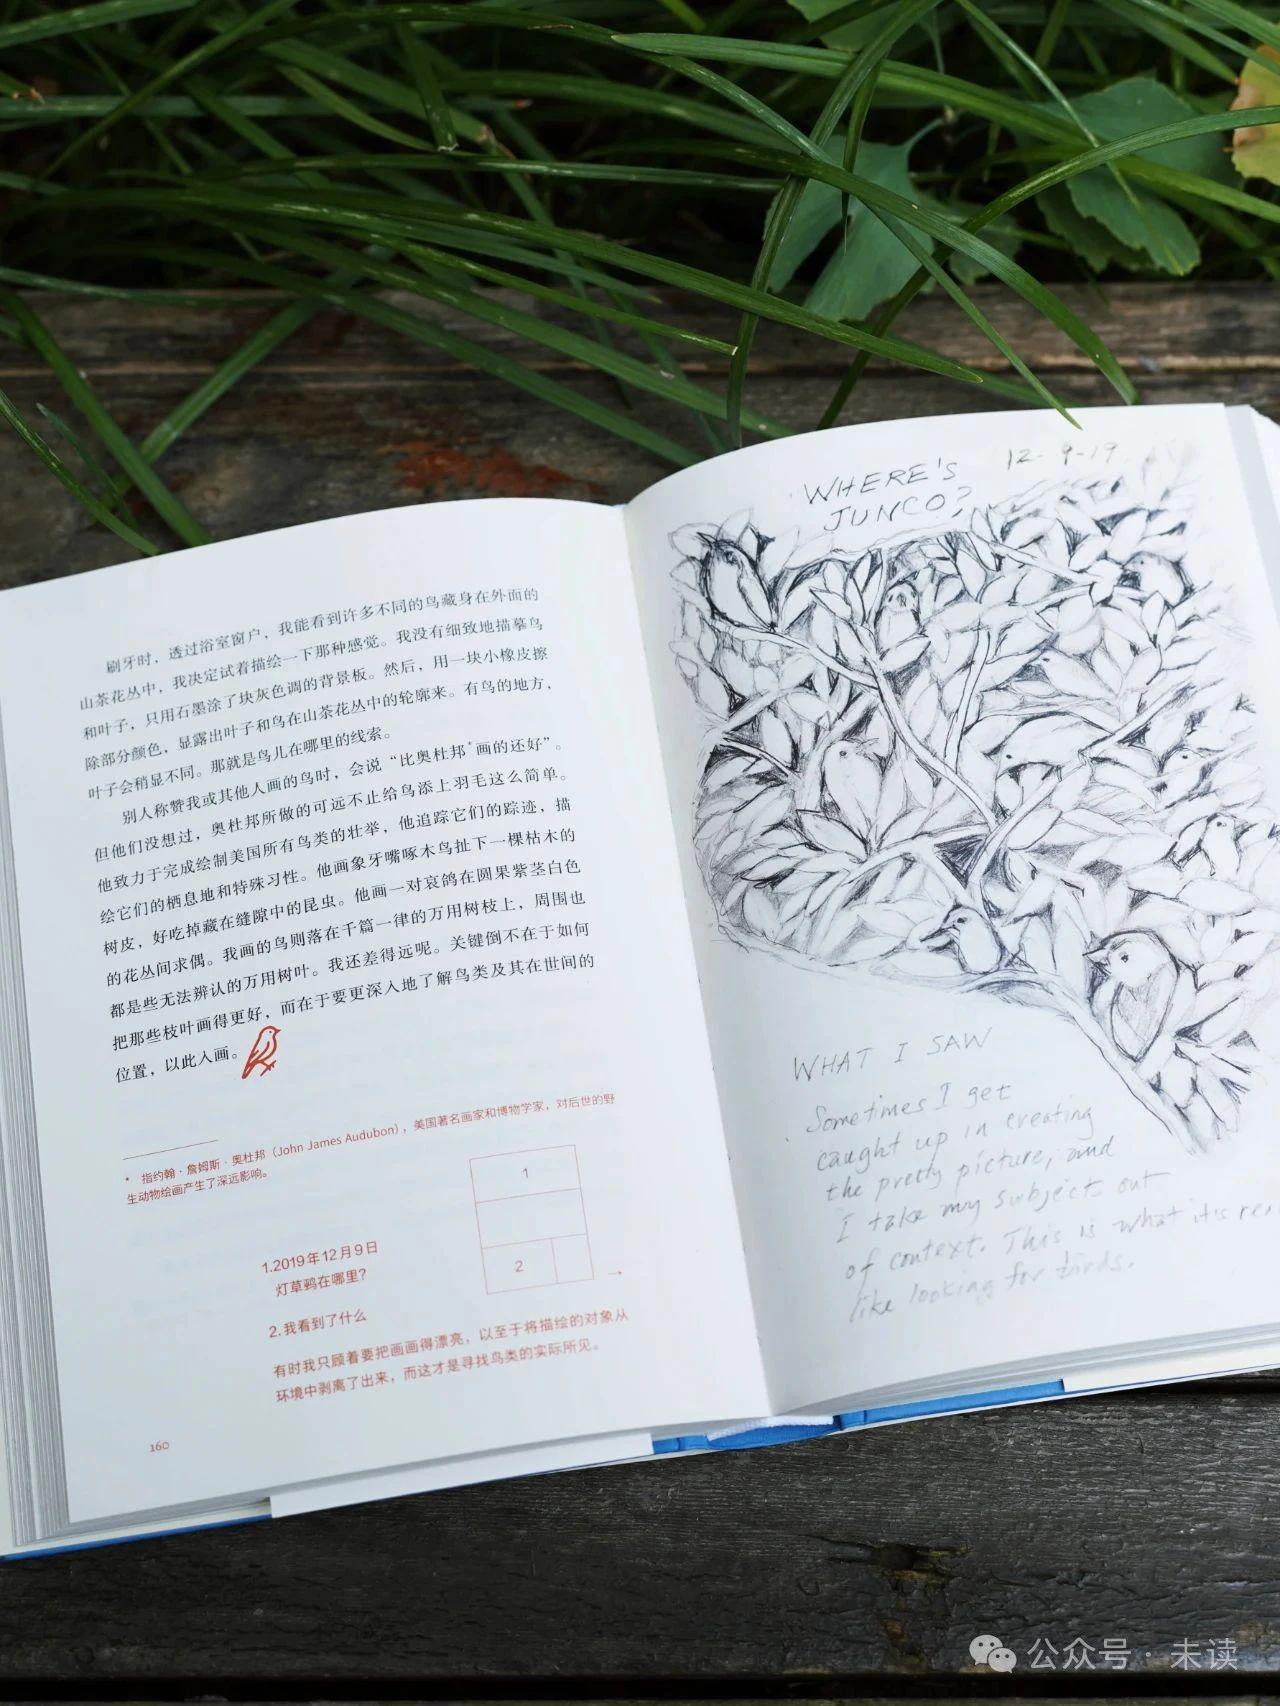 刷牙时，透过浴室窗户，我能看到许多不同的鸟藏身在外面的
山茶花丛中，我决定试着描绘一下那种感觉。我没有细致地描摹鸟
和叶子，只用石墨涂了块灰色调的背景板。然后，用一块小橡皮擦
除部分颜色，显露出叶子和鸟在山茶花丛中的轮廓来。有鸟的地方，
叶子会稍显不同。那就是鸟儿在哪里的线索。
别人称赞我或其他人画的鸟时，会说“比奥杜邦*画的还好”。
但他们没想过，奥杜邦所做的可远不止给鸟添上羽毛这么简单。
他致力于完成绘制美国所有鸟类的壮举，他追踪它们的踪迹，描
绘它们的栖息地和特殊习性。他画象牙嘴啄木鸟扯下一棵枯木的
树皮，好吃掉藏在缝隙中的昆虫。他画一对哀鸽在圆果紫茎白色
的花丛间求偶。我画的鸟则落在千篇一律的万用树枝上，周围也
都是些无法辨认的万用树叶。我还差得远呢。关键倒不在于如何
把那些枝叶画得更好，而在于要更深入地了解鸟类及其在世间的
位置，以此入画。
* 指约翰·詹姆斯·奥杜邦（John James Audubon），美国著名画家和博物学家，对后世的野
生动物绘画产生了深远影响。
1
2
→
1.2019年12月9日
灯草鹀在哪里？
2.我看到了什么
有时我只顾着要把画画得漂亮，以至于将描绘的对象从
环境中剥离了出来，而这才是寻找鸟类的实际所见。
160
WHERE'S 12-9-19
JUNCO?
WHAT I SAW
Sometimes I get
caught up in creating
the pretty picture, and
I take my subject out
of context. This is what it's
like looking for birds.
公众号·未读